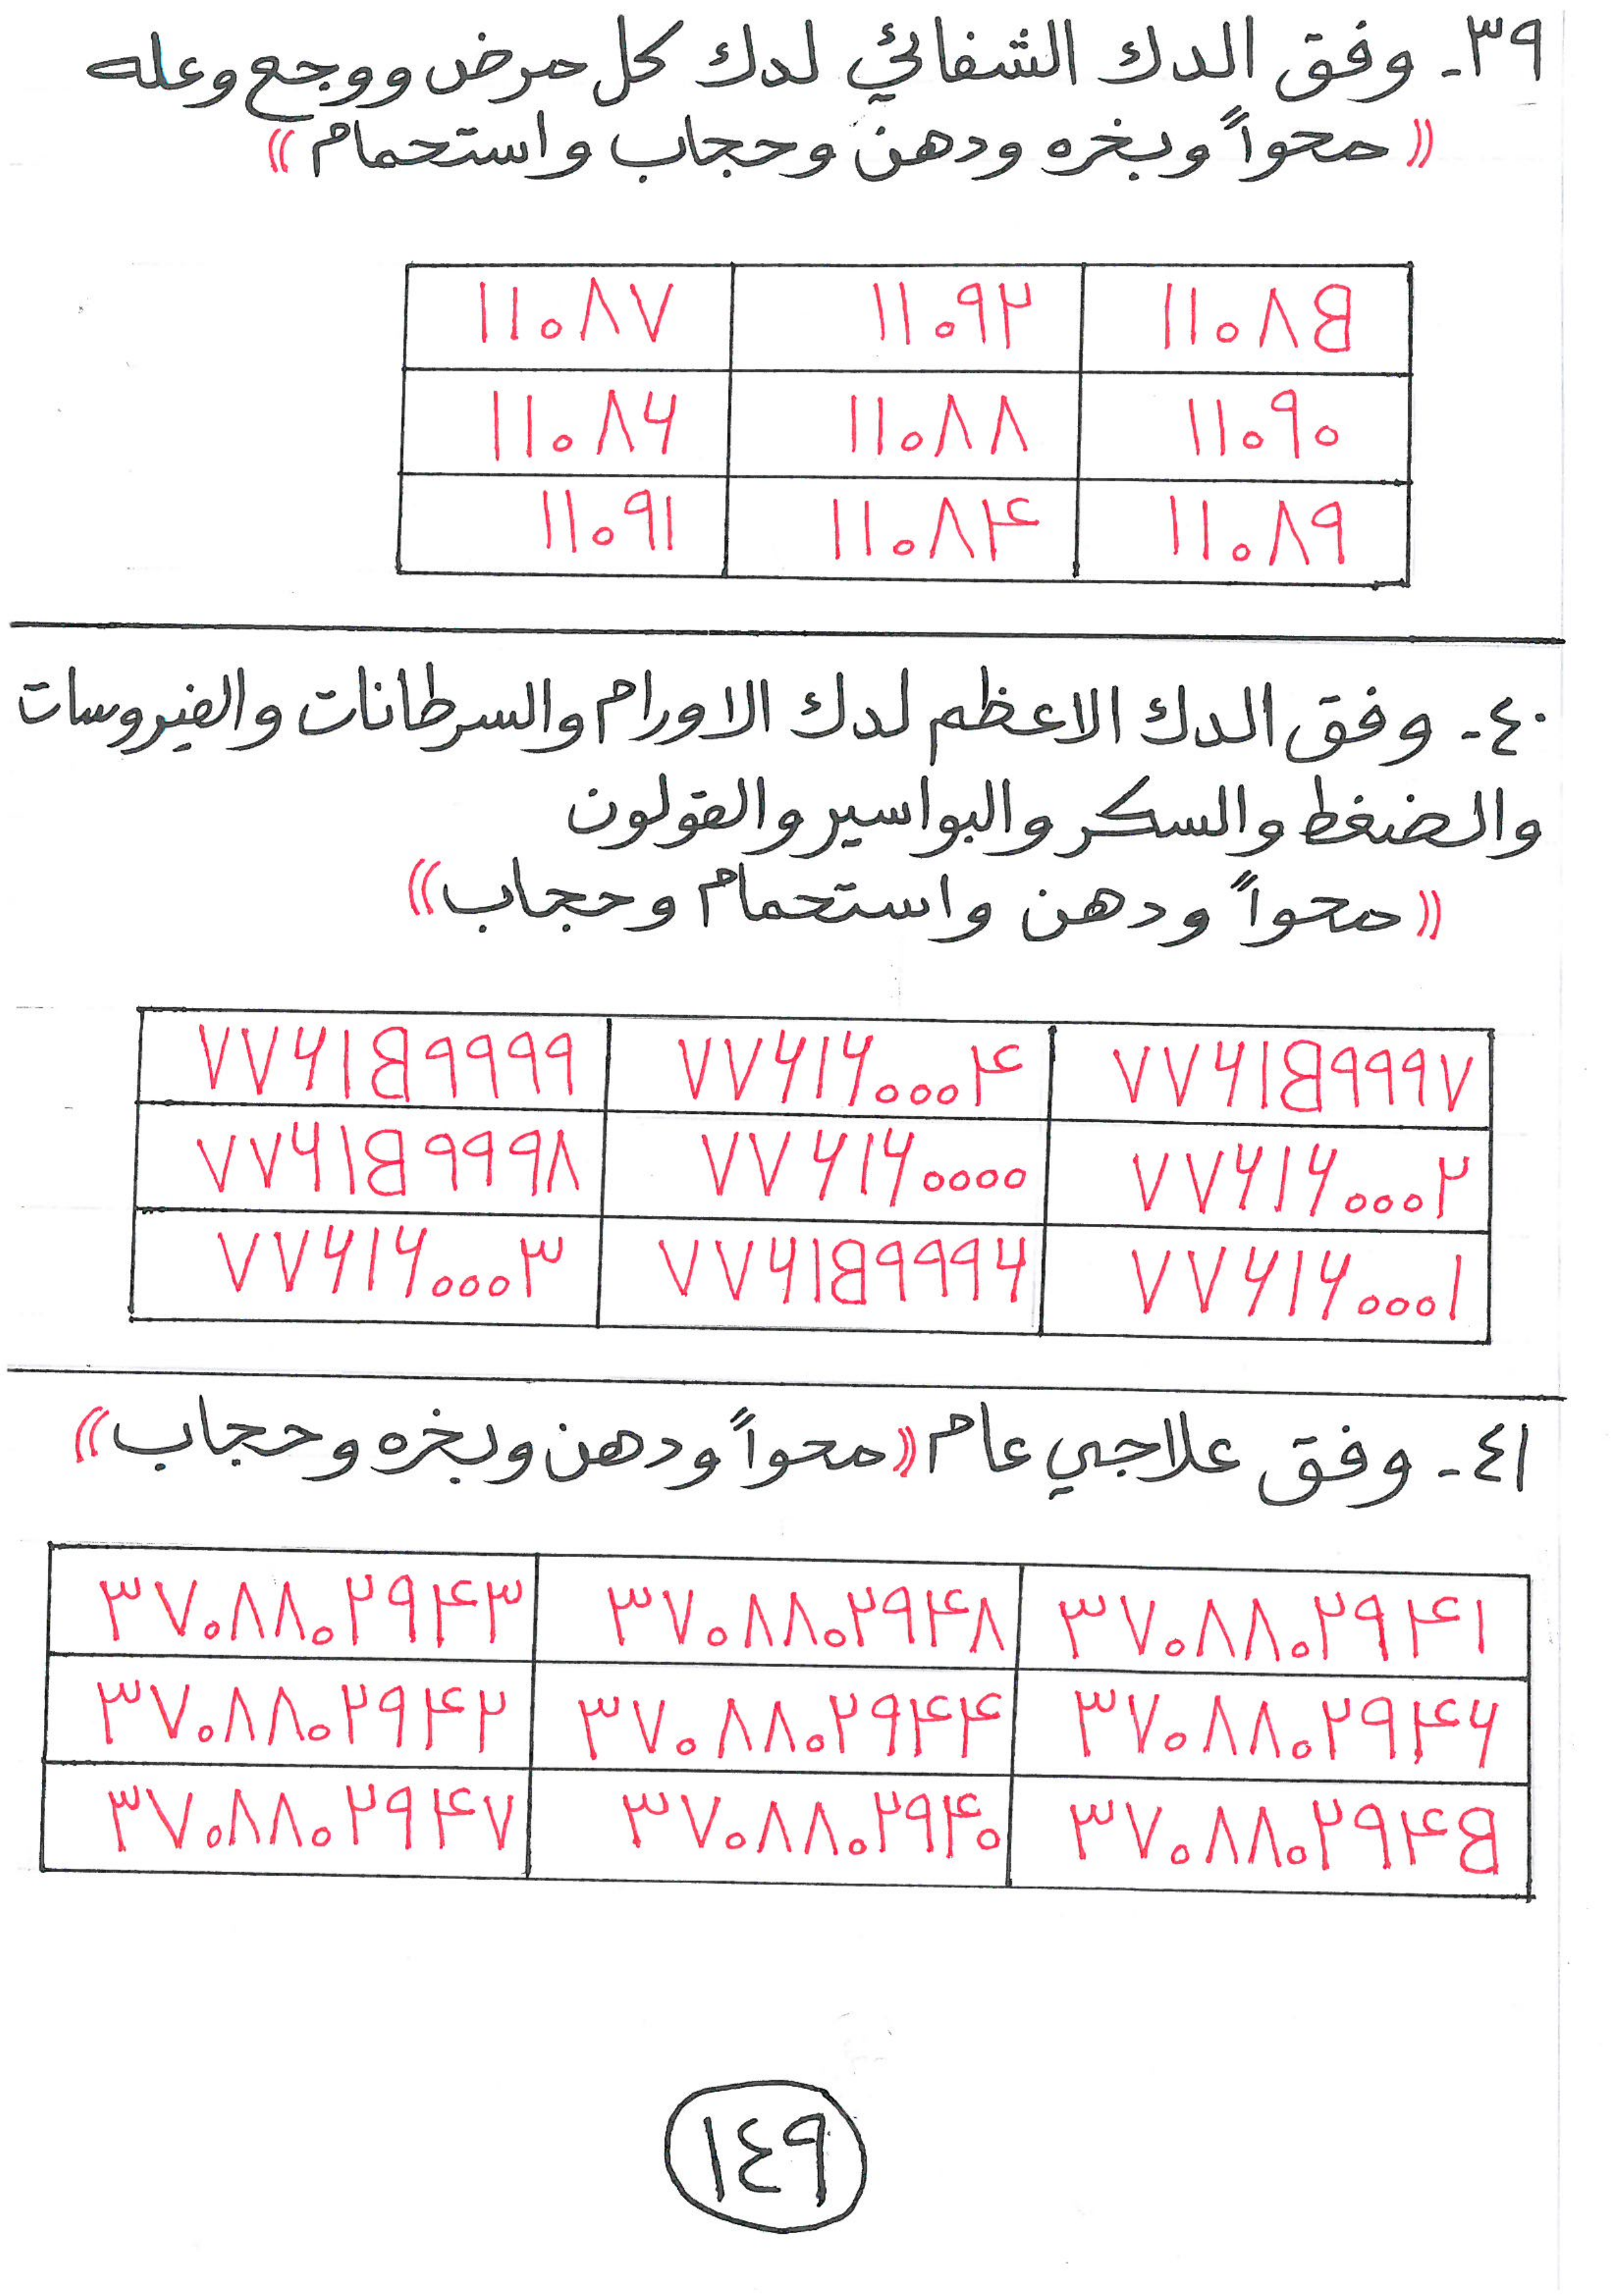 ٣٩- وفق الدك الشفائي لدك كل مرض ووجع وعله
(( محواً وبخره ودهن وحجاب واستحمام ))
١١٠٨٥ ١١٠٩٢ ١١٠٨٧
١١٠٩٠ ١١٠٨٨ ١١٠٨٦
١١٠٨٩ ١١٠٨٤ ١١٠٩١
٤٠- وفق الدك الاعظم لدك الاورام والسرطانات والفيروسات
والضغط والسكر والبواسير والقولون
(( محواً ودهن واستحمام وحجاب ))
٧٧٦١٥٩٩٩٧ ٧٧٦١٦٠٠٠٤ ٧٧٦١٥٩٩٩٩
٧٧٦١٦٠٠٠٢ ٧٧٦١٦٠٠٠٠ ٧٧٦١٥٩٩٩٨
٧٧٦١٦٠٠٠١ ٧٧٦١٥٩٩٩٦ ٧٧٦١٦٠٠٠٣
٤١- وفق علاجي عام (( محواً ودهن وبخره وحجاب ))
٣٧٠٨٨٠٢٩٤١ ٣٧٠٨٨٠٢٩٤٨ ٣٧٠٨٨٠٢٩٤٣
٣٧٠٨٨٠٢٩٤٦ ٣٧٠٨٨٠٢٩٤٤ ٣٧٠٨٨٠٢٩٤٢
٣٧٠٨٨٠٢٩٤٥ ٣٧٠٨٨٠٢٩٤٠ ٣٧٠٨٨٠٢٩٤٧
١٤٩